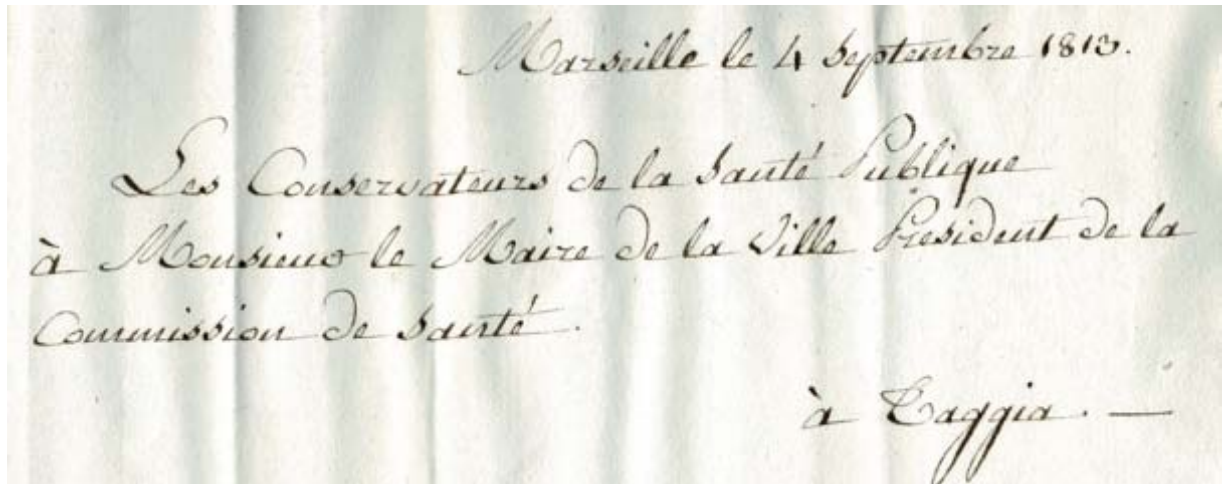 Marseille le 4 Septembre 1813.
Les Conservateurs de la Santé Publique
à Monsieur le Maire de la Ville Président de la
Commission de Santé.
à Taggia. —